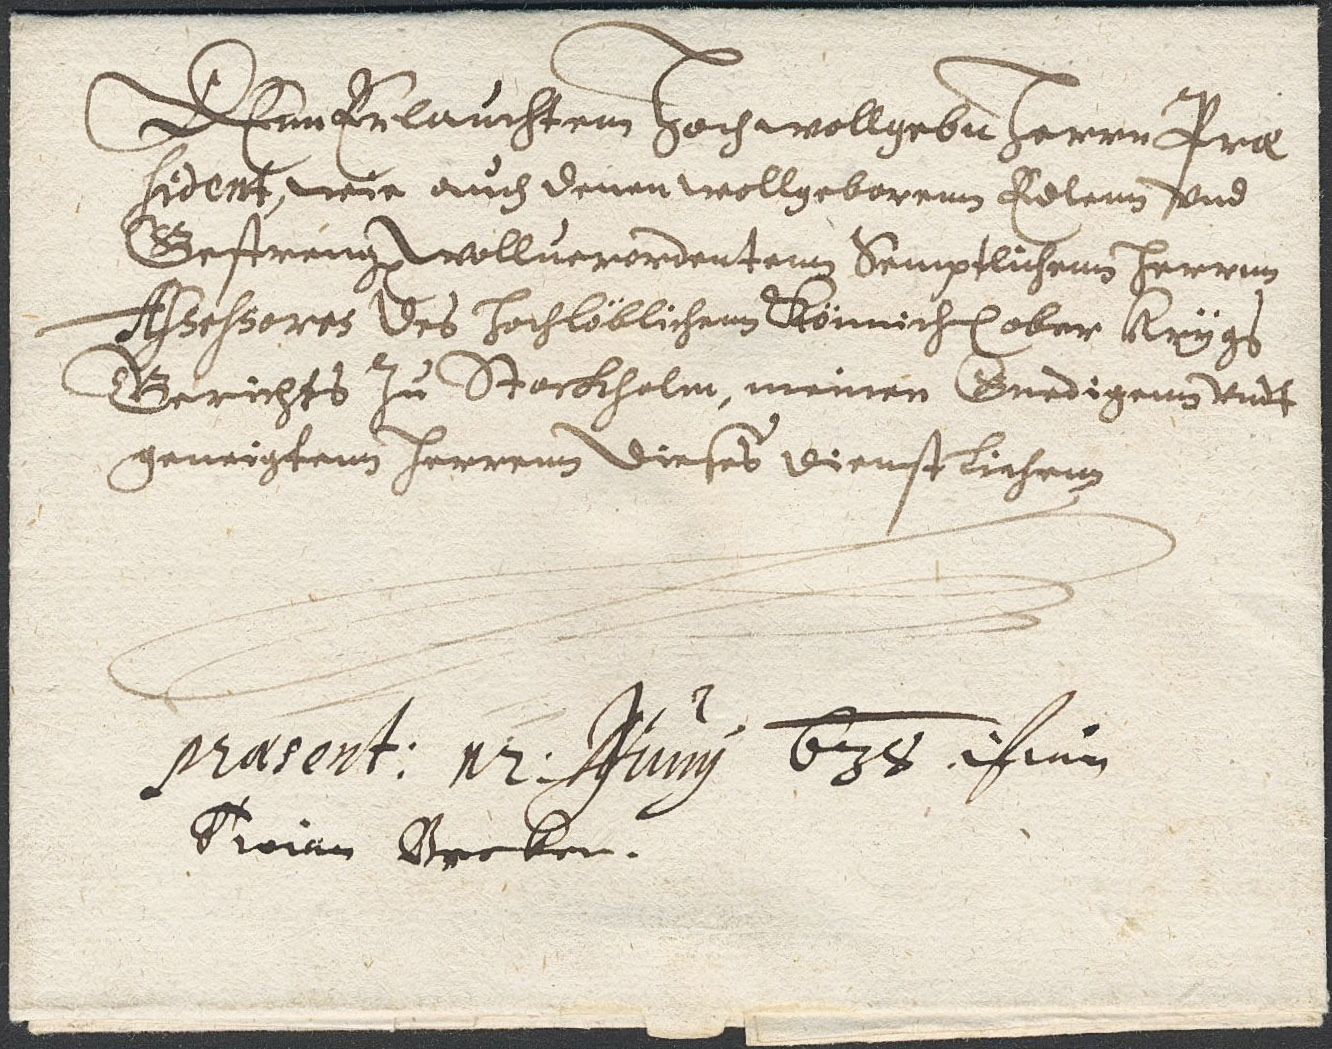 Denn Erlauchtem Hochwollgebn Herrn Præ
sident, wie auch denen wollgeborenn Edlenn Vnd
Gestreng wolluerordentenn Semptlichenn Herrnn
Assessores des Hochlöblichenn Könnich ober Krÿgs
Gerichts Zu Stockholm, meinen Gnedigenn vndt
geneigtenn Herrenn Dieses dienstlichenn
præsent: Junij 638